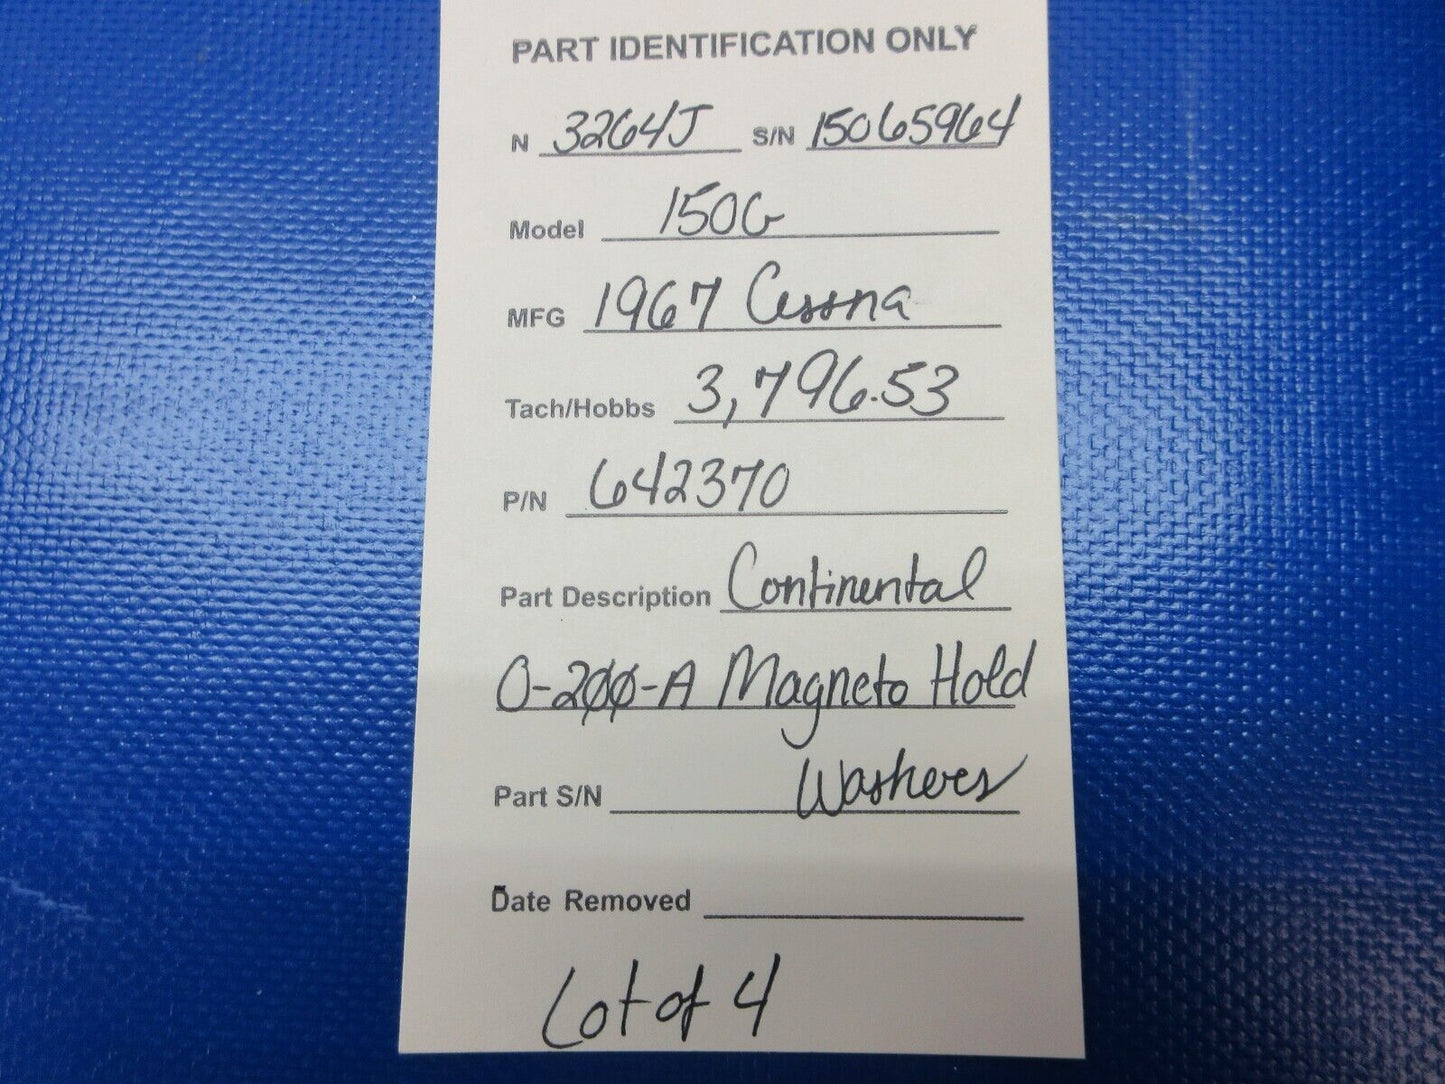 PART IDENTIFICATION ONLY
N 3264J S/N 15065964
Model 150G
MFG 1967 Cessna
Tach/Hobbs 3,796.53
P/N 642370
Part Description Continental
O-200-A Magneto Hold
Washers
Part S/N
Date Removed
Lot of 4